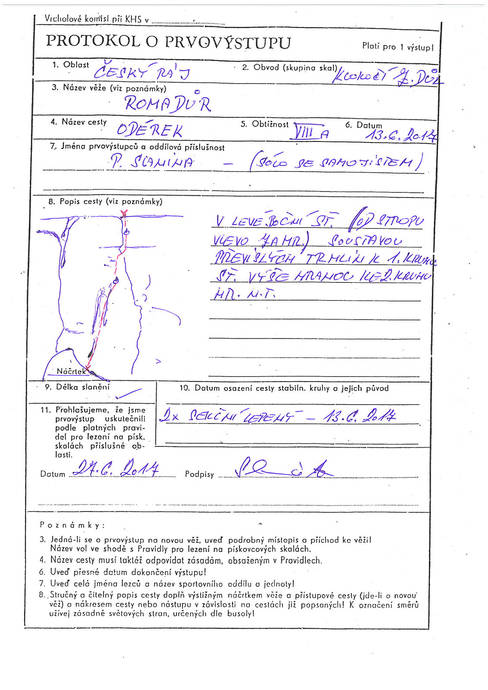 Vrcholové komisi při KHS v
PROTOKOL O PRVOVÝSTUPU
Platí pro 1 výstup!
1. Oblast ČESKÝ RÁJ
2. Obvod (skupina skal) KLOKOČÍ Z. DŮL
3. Název věže (viz poznámky)
ROMADŮR
4. Název cesty ODĚREK
5. Obtížnost VIII A
6. Datum 13.6.2017
7. Jména prvovýstupců a oddílová příslušnost
P. SLANINA – (SÓLO SE SAMOJISTEM)
8. Popis cesty (viz poznámky)
V LEVÉ BOČNÍ ST. (OD STROPU
VLEVO ZA HR.) SOUSTAVOU
PŘEVISLÝCH TRHLIN K 1. KRUHU
ST. VÝŠE HRANOU KE 2. KRUHU
HR. N.T.
Náčrtek
9. Délka slanění
10. Datum osazení cesty stabiln. kruhy a jejich původ
11. Prohlašujeme, že jsme
prvovýstup uskutečnili
podle platných pravi-
del pro lezení na písk.
skalách příslušné ob-
lasti.
2x SEKČNÍ LEPENÝ – 13.6.2017
Datum 27.6.2017
Podpisy
Poznámky:
3. Jedná-li se o prvovýstup na novou věž, uveď podrobný místopis a příchod ke věži!
Název vol ve shodě s Pravidly pro lezení na pískovcových skalách.
4. Název cesty musí taktéž odpovídat zásadám, obsaženým v Pravidlech.
6. Uveď přesné datum dokončení výstupu!
7. Uveď celá jména lezců a název sportovního oddílu a jednoty!
8. Stručný a čitelný popis cesty doplň výstižným náčrtkem věže a přístupové cesty (jde-li o novou
věž) a nákresem cesty nebo nástupu v závislosti na cestách již popsaných! K označení směrů
užívej zásadně světových stran, určených dle busoly!